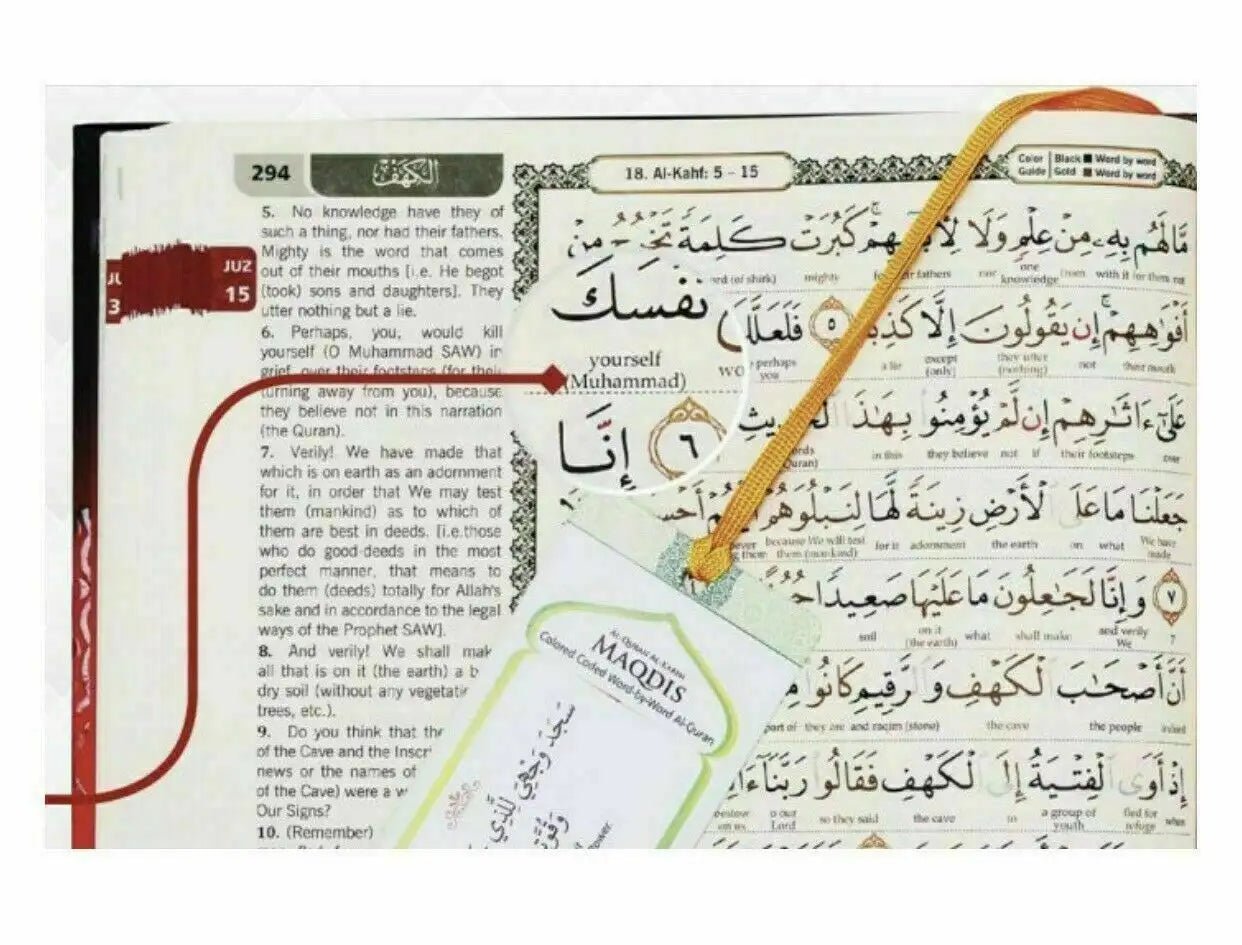 294
الكهف
18. Al-Kahf: 5 - 15
Color Guide
Black Word by word
Gold Word by word
JUZ
15
5. No knowledge have they of
such a thing, nor had their fathers.
Mighty is the word that comes
out of their mouths [i.e. He begot
(took) sons and daughters]. They
utter nothing but a lie.
6. Perhaps, you, would kill
yourself (O Muhammad SAW) in
grief, over their footsteps (for their
turning away from you), because
they believe not in this narration
(the Quran).
7. Verily! We have made that
which is on earth as an adornment
for it, in order that We may test
them (mankind) as to which of
them are best in deeds. [i.e.those
who do good deeds in the most
perfect manner, that means to
do them (deeds) totally for Allah's
sake and in accordance to the legal
ways of the Prophet SAW].
8. And verily! We shall mak
all that is on it (the earth) a b
dry soil (without any vegetati
trees, etc.).
9. Do you think that the
of the Cave and the Inscri
news or the names of
of the Cave) were a w
Our Signs?
10. (Remember)
مَّا لَهُم بِهِۦ مِنْ عِلْمٍ وَلَا لِآبَائِهِمْ كَبُرَتْ كَلِمَةً تَخْرُجُ مِنْ
(of shirk) mighty fathers nor knowledge from with it for them no
أَفْوَاهِهِمْ إِن يَقُولُونَ إِلَّا كَذِبًا ٥ فَلَعَلَّكَ
perhaps you a lie except (only) they utter (nothing) not their mouth
نَفْسَكَ
yourself
(Muhammad)
عَلَىٰ ءَاثَٰرِهِمْ إِن لَّمْ يُؤْمِنُوا بِهَٰذَا الْحَدِيثِ
in this they believe not if their footsteps over
٦ إِنَّا
جَعَلْنَا مَا عَلَى الْأَرْضِ زِينَةً لَّهَا لِنَبْلُوَهُمْ أَيُّهُمْ أَحْسَ
because We will test them (mankind) for it adornment the earth on what We have made
٧ وَإِنَّا لَجَٰعِلُونَ مَا عَلَيْهَا صَعِيدًا جُرُزًا
soil on it (the earth) what shall make and verily We 7
أَنَّ أَصْحَٰبَ الْكَهْفِ وَالرَّقِيمِ كَانُوا مِ
part of they are and raqim (stone) the cave the people that
إِذْ أَوَى الْفِتْيَةُ إِلَى الْكَهْفِ فَقَالُوا رَبَّنَا ءَا
bestow on us o our Lord so they said the cave to a group of youth fled for refuge when
AL-QURAN AL-KARIM
MAQDIS
Colored Coded Word-by-Word Al-Quran
سَجَدَ وَجْهِيَ لِلَّذِي